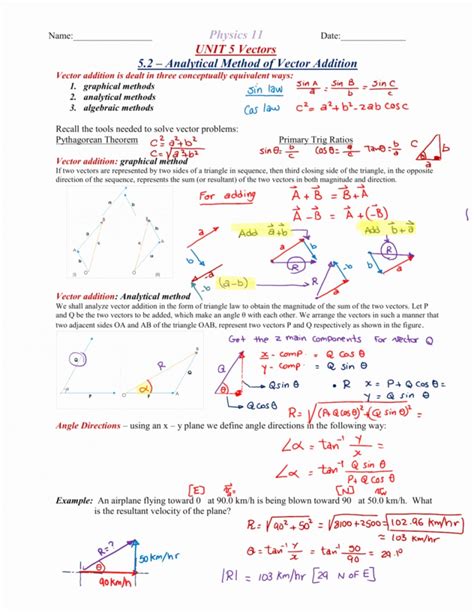 Name:______________ Physics 11 Date:______________
UNIT 5 Vectors
5.2 – Analytical Method of Vector Addition
Vector addition is dealt in three conceptually equivalent ways:
1. graphical methods
2. analytical methods
3. algebraic methods
sin law sin A/a = sin B/b = sin C/c
cos law c² = a² + b² - 2ab cos C
Recall the tools needed to solve vector problems:
Pythagorean Theorem Primary Trig Ratios
c² = a² + b²
c = √a² + b²
sin θ = b/c cos θ = a/c tan θ = b/a
c b a θ
Vector addition: graphical method
If two vectors are represented by two sides of a triangle in sequence, then third closing side of the triangle, in the opposite
direction of the sequence, represents the sum (or resultant) of the two vectors in both magnitude and direction.
For adding A + B = B + A
A - B = A + (-B)
Add a + b Add b + a
a b R
(a-b)
Vector addition: Analytical method
We shall analyze vector addition in the form of triangle law to obtain the magnitude of the sum of the two vectors. Let P
and Q be the two vectors to be added, which make an angle θ with each other. We arrange the vectors in such a manner
that two adjacent sides OA and AB of the triangle OAB, represent two vectors P and Q respectively as shown in the figure.
Get the 2 main components for vector Q
x - comp = Q cos θ
y - comp = Q sin θ
Q θ Q sin θ Q cos θ
• R x = P + Q cos θ
y = Q sin θ
R = √(P+Q cos θ)² + (Q sin θ)²
Angle Directions – using an x – y plane we define angle directions in the following way:
∠α = tan⁻¹ y/x
∠α = tan⁻¹ Q sin θ / P + Q cos θ
[E] [N]
Example: An airplane flying toward 0 at 90.0 km/hr is being blown toward 90 at 50.0 km/h. What
is the resultant velocity of the plane?
R = √90² + 50² = √8100 + 2500 = 102.96 km/hr
≈ 103 km/hr
R=? θ 50 km/hr
90 km/hr
θ = tan⁻¹ y/x = tan⁻¹
|R| = 103 km/hr [29 N of E]